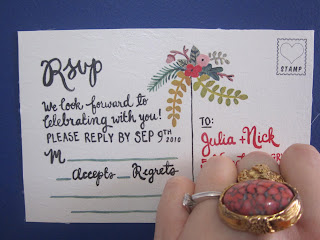 Rsvp
We look forward to
celebrating with you!
PLEASE REPLY BY SEP 9TH
2010
M
Accepts Regrets
STAMP
TO:
Julia + Nick